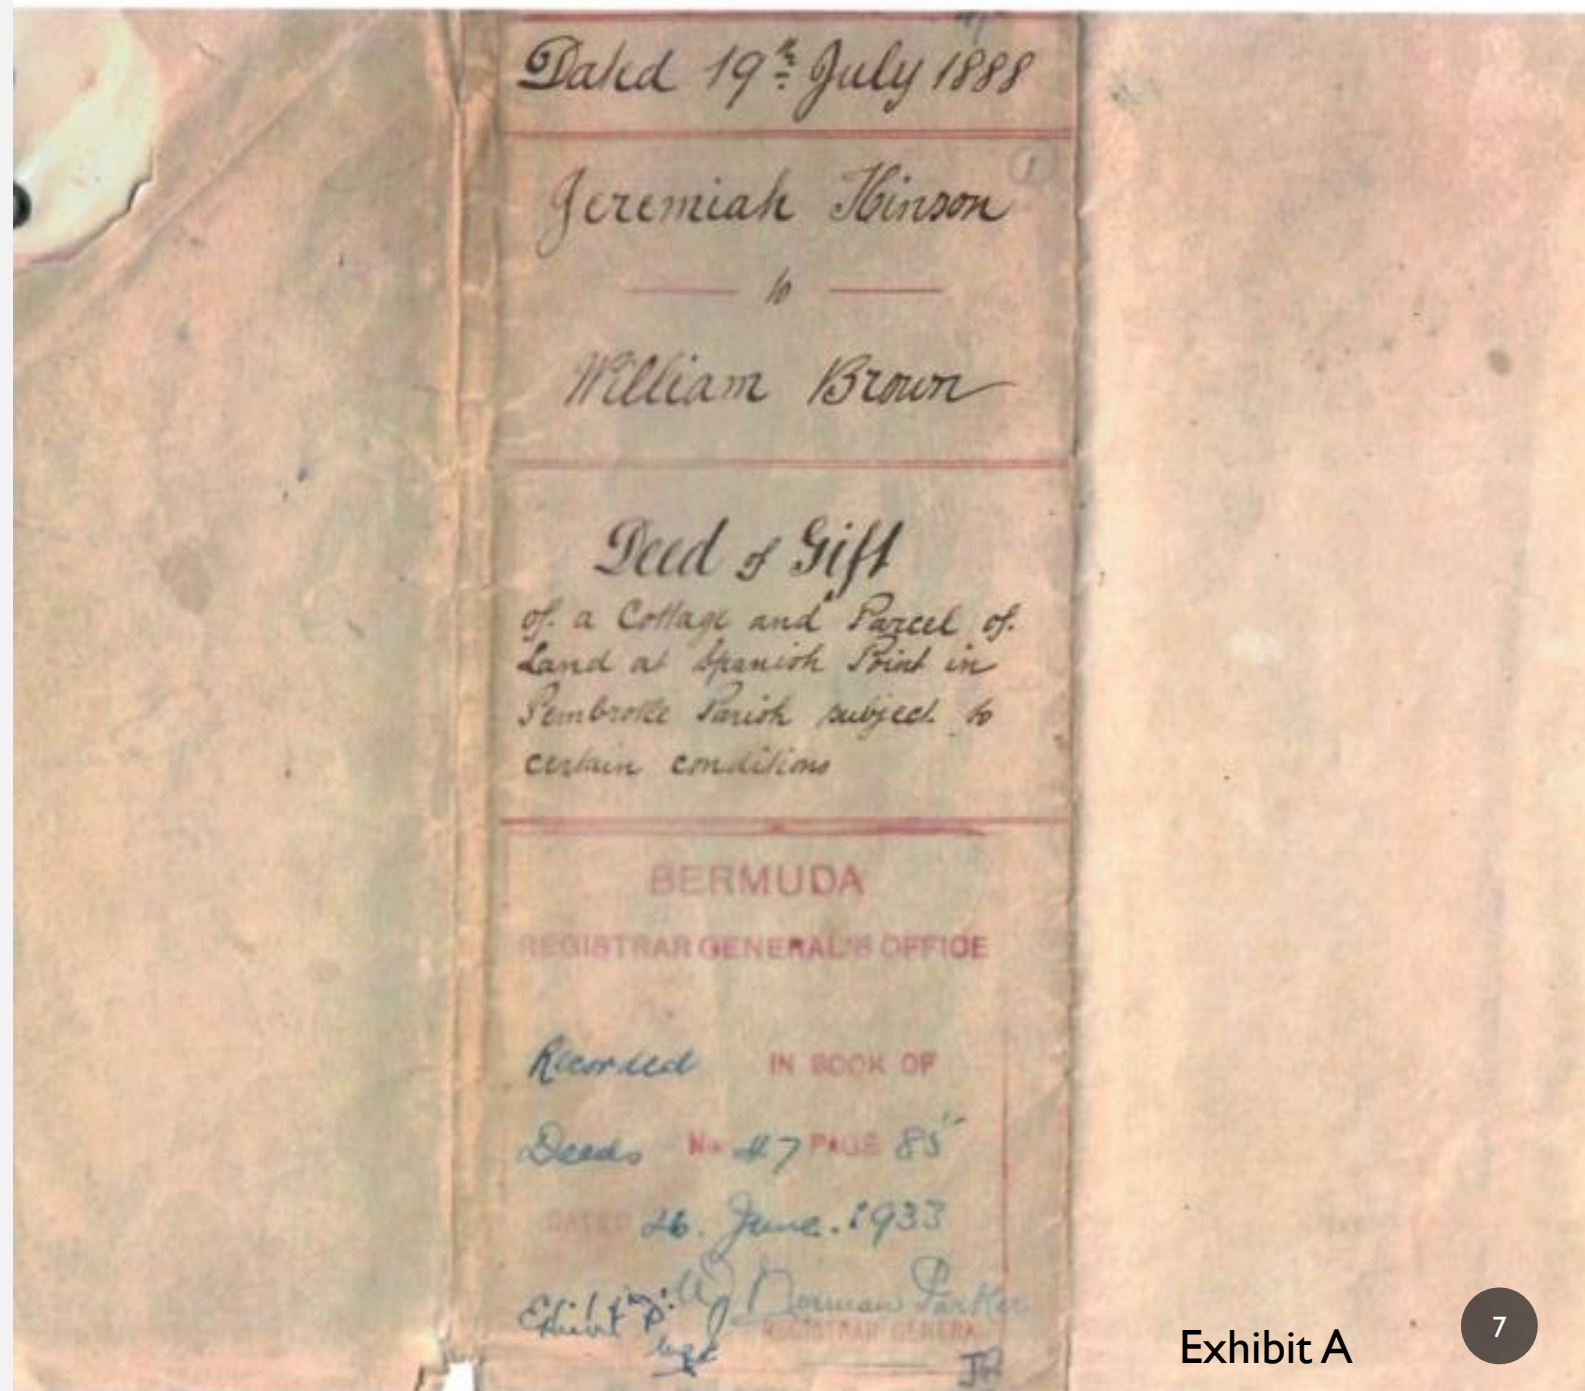 Dated 19th July 1888
1
Jeremiah Hinson
to
William Brown
Deed of Gift
of a Cottage and Parcel of
Land at Spanish Point in
Pembroke Parish subject to
certain conditions
BERMUDA
REGISTRAR GENERAL'S OFFICE
Recorded IN BOOK OF
Deeds No. 47 PAGE 85
DATED 26. June. 1933
Norman Parker
Exhibit
REGISTRAR GENERAL
Exhibit A
7